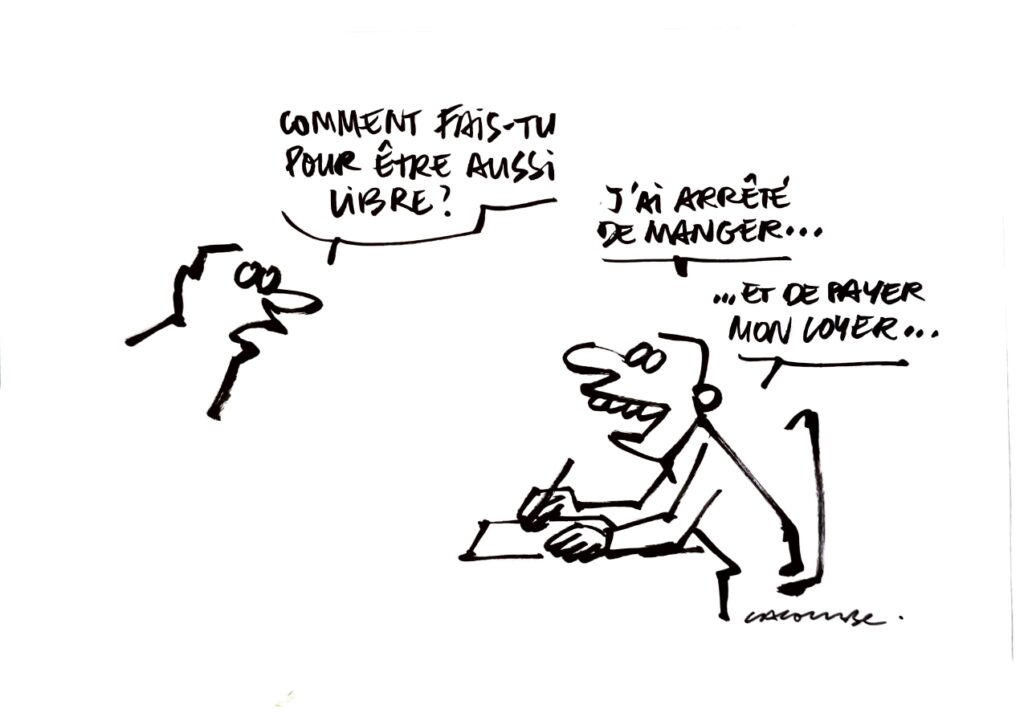 COMMENT FAIS-TU
POUR ÊTRE AUSSI
LIBRE?
J'AI ARRÊTÉ
DE MANGER...
...ET DE PAYER
MON LOYER...
LACOMBE.